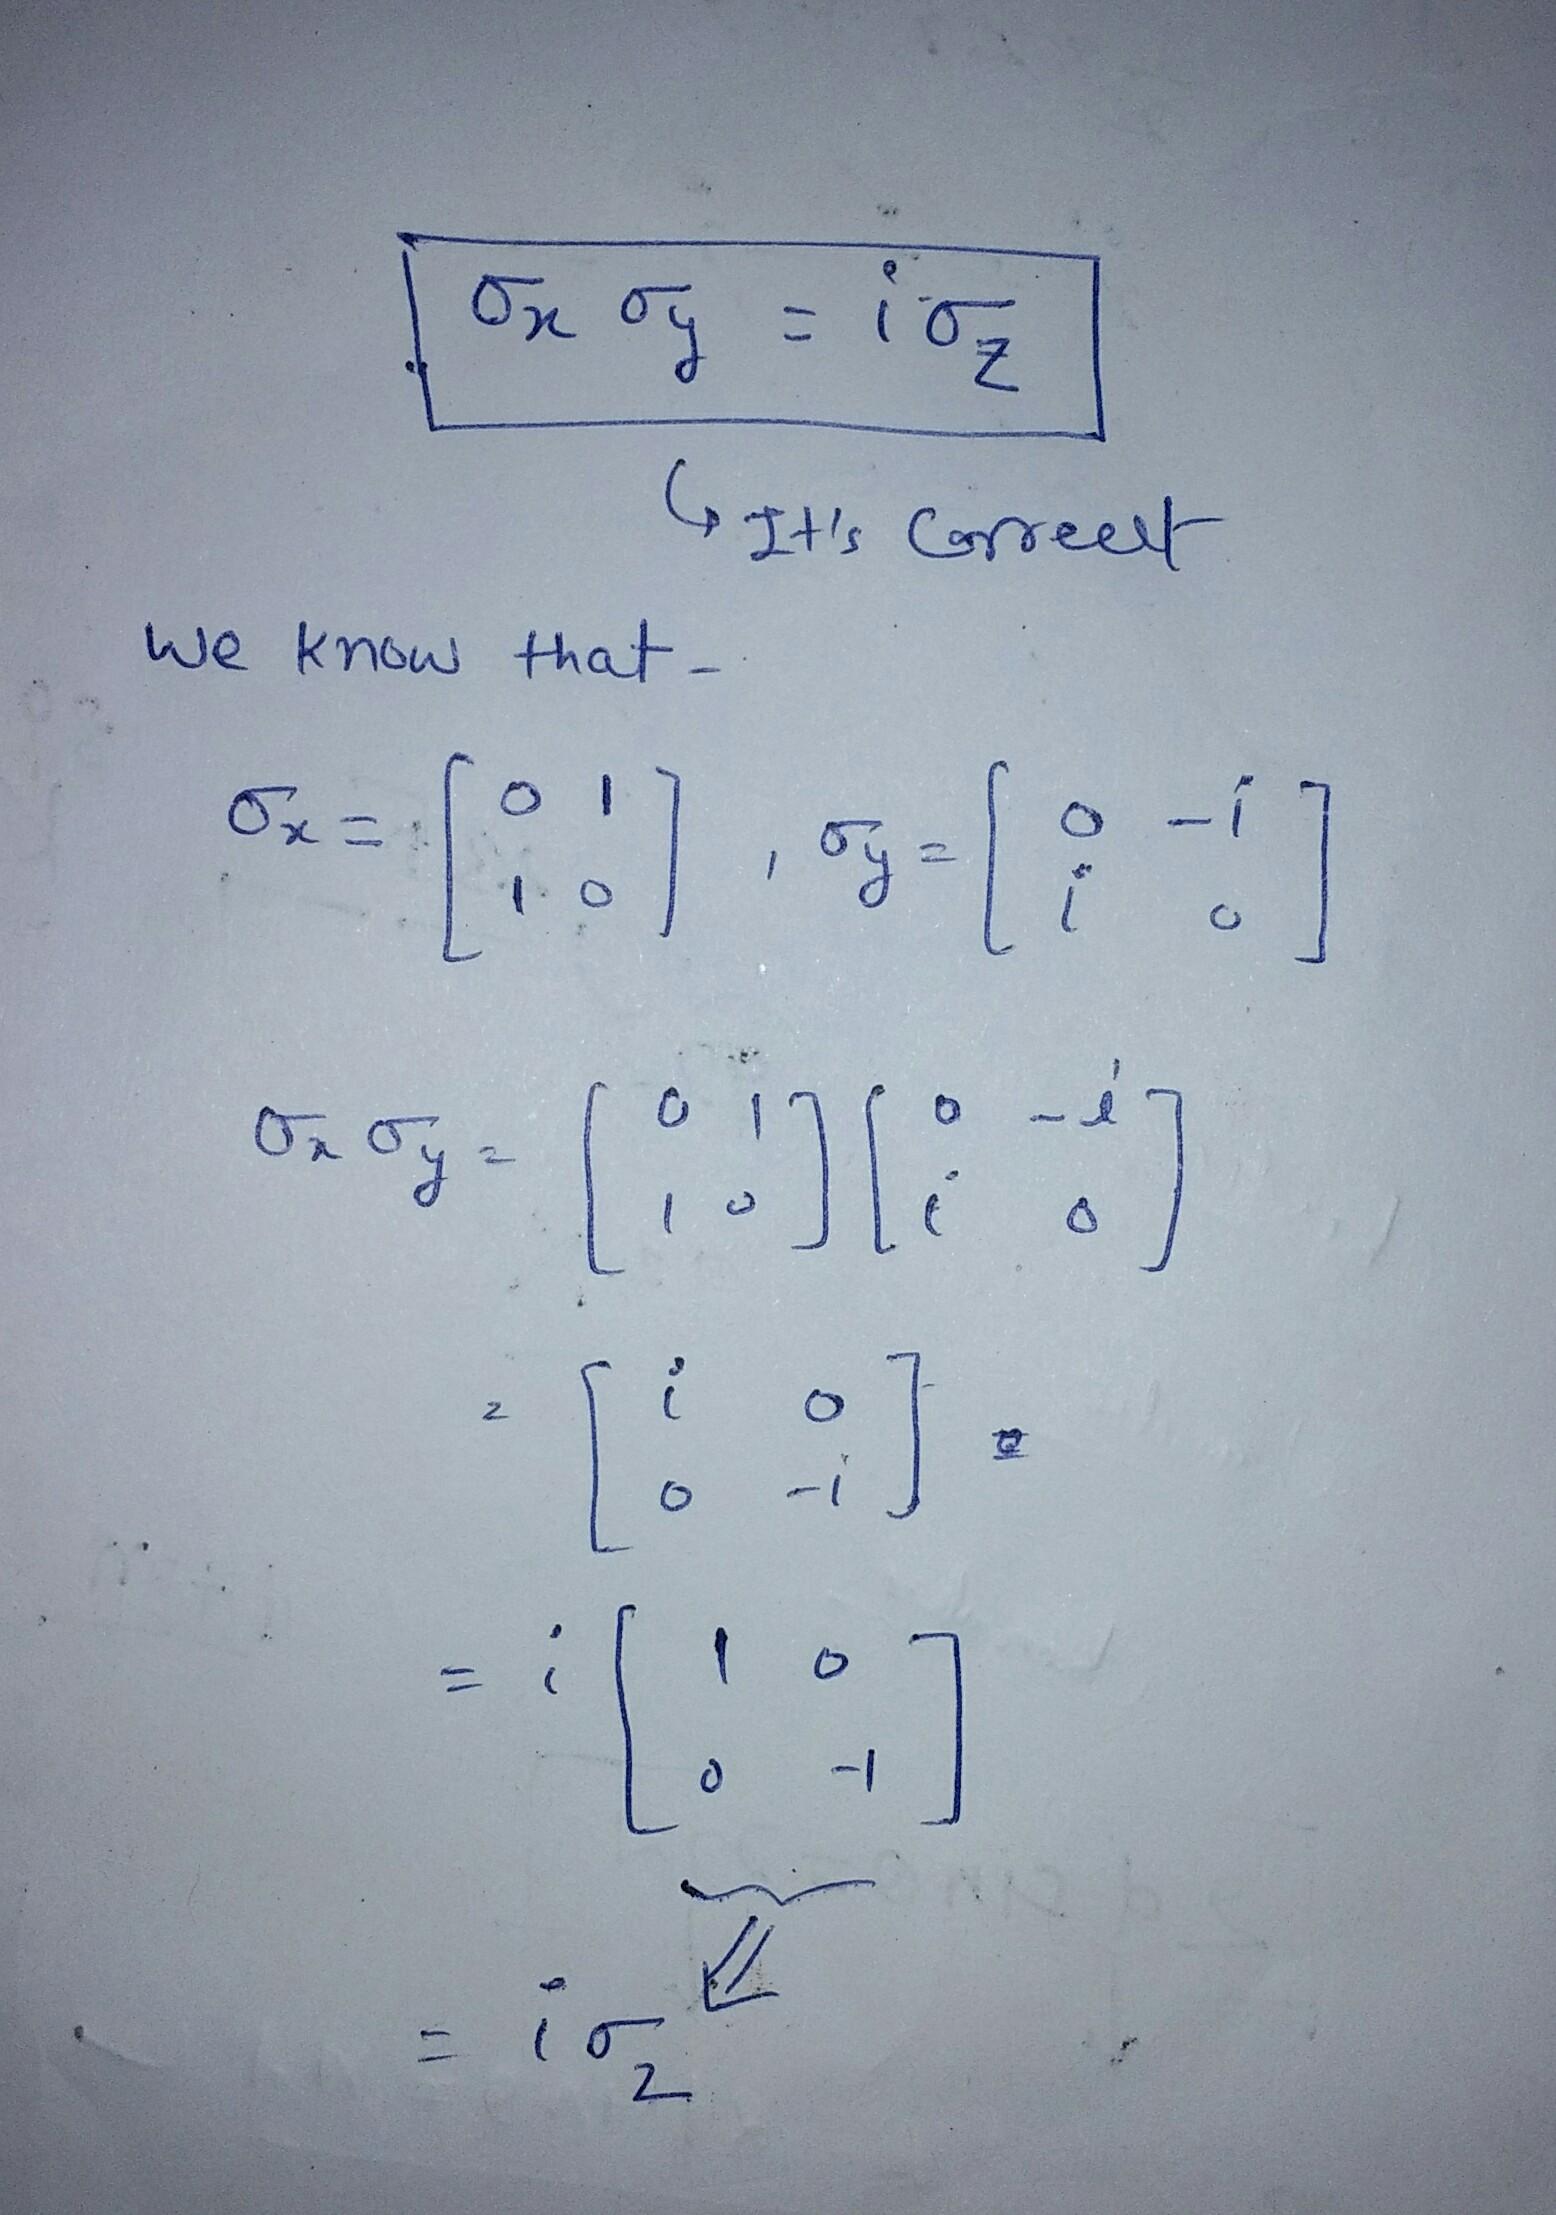 σx σy = iσz
↳ It's Correct
We know that -
σx = [ 0 1 ; 1 0 ] , σy = [ 0 -i ; i 0 ]
σx σy = [ 0 1 ; 1 0 ] [ 0 -i ; i 0 ]
= [ i 0 ; 0 -i ] =
= i [ 1 0 ; 0 -1 ]
= iσz